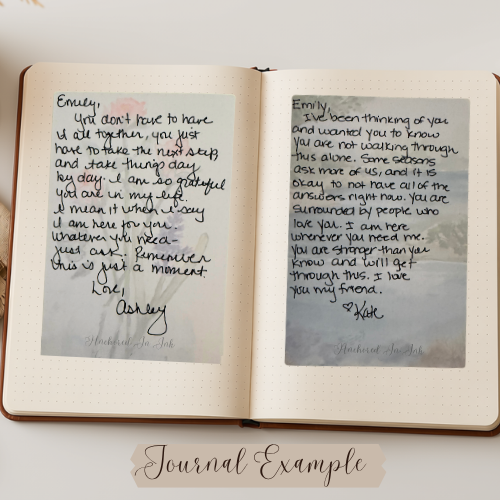 Emily,
You don't have to have
it all together, you just
have to take the next step,
and take things day
by day. I am so grateful
you are in my life.
I mean it when I say
I am here for you.
Whatever you need-
just ask. Remember
this is just a moment
Love,
Ashley
Anchored In Ink
Emily,
I've been thinking of you
and wanted you to know
you are not walking through
this alone. Some seasons
ask more of us, and it is
okay to not have all of the
answers right now. You are
surrounded by people who
love you. I am here
whenever you need me.
You are stronger than you
know and will get
through this. I love
you my friend.
♡Kate
Anchored In Ink
Journal Example